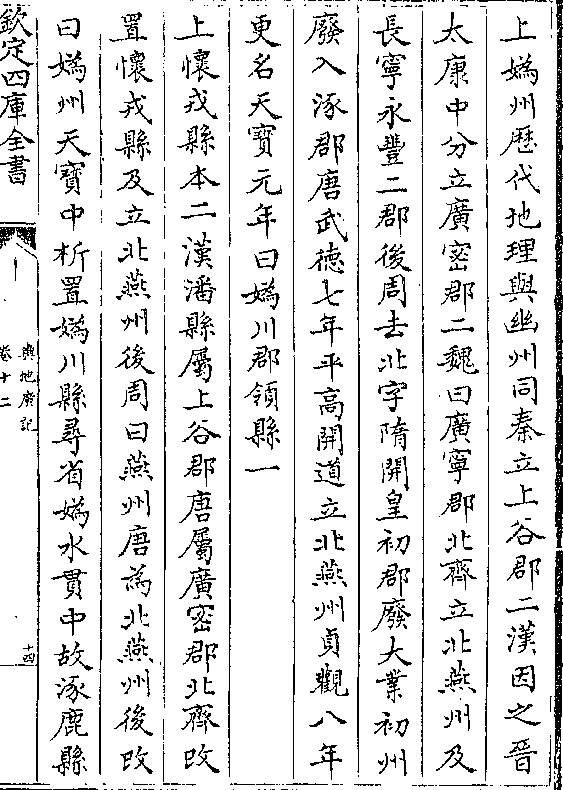 上媯州歷代地理與幽州同秦立上谷郡二漢因之晉
太康中分立廣寗郡二魏曰廣寧郡北齊立北燕州及
長寧永豐二郡後周去北字隋開皇初郡廢大業初州
廢入涿郡唐武德七年平高開道立北燕州貞觀八年
更名天寶元年曰媯川郡領縣一
上懷戎縣本二漢潘縣屬上谷郡唐屬廣寗郡北齊改
置懷戎縣及立北燕州後周曰燕州唐為北燕州後改
曰媯州天寶中析置媯川縣尋省媯水貫中故涿鹿縣
欽定四庫全書
輿地廣記
卷十二
十四